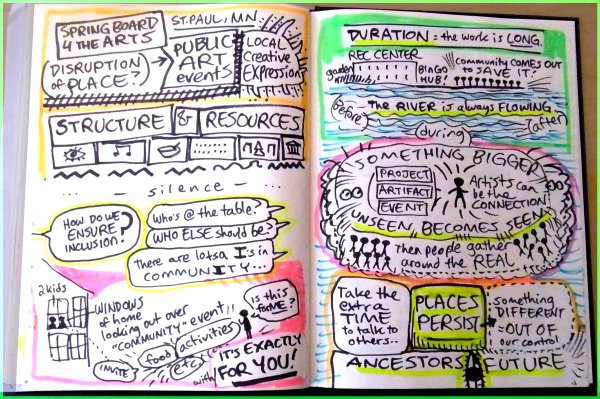 SPRINGBOARD
4 THE ARTS
ST. PAUL, MN.
DISRUPTION
of PLACE?
PUBLIC
ART
events
LOCAL
Creative
EXPRESSION?
STRUCTURE & RESOURCES
... — silence — ...
HOW DO WE
ENSURE
INCLUSION?
Who's @ the table?
WHO ELSE should be?
There are lotsa I's in
COMMUNITY...
2 kids
WINDOWS
of home
looking out over
"COMMUNITY" event!!
INVITE
food
activities
(etc)
Is this
for ME?
with
IT'S EXACTLY
FOR YOU!
DURATION = the work is LONG.
REC CENTER
garden
BINGO
HUB!
community COMES OUT
to SAVE IT!
(Before)
The RIVER is always FLOWING
(during)
(after)
SOMETHING BIGGER
PROJECT
ARTIFACT
EVENT
Artists can
be the
CONNECTION
UNSEEN BECOMES SEEN
Then people gather
around the REAL
Take the
extra
TIME
to talk to
others..
PLACES
PERSIST
something
DIFFERENT
=OUT OF
our control
ANCESTORS
FUTURE